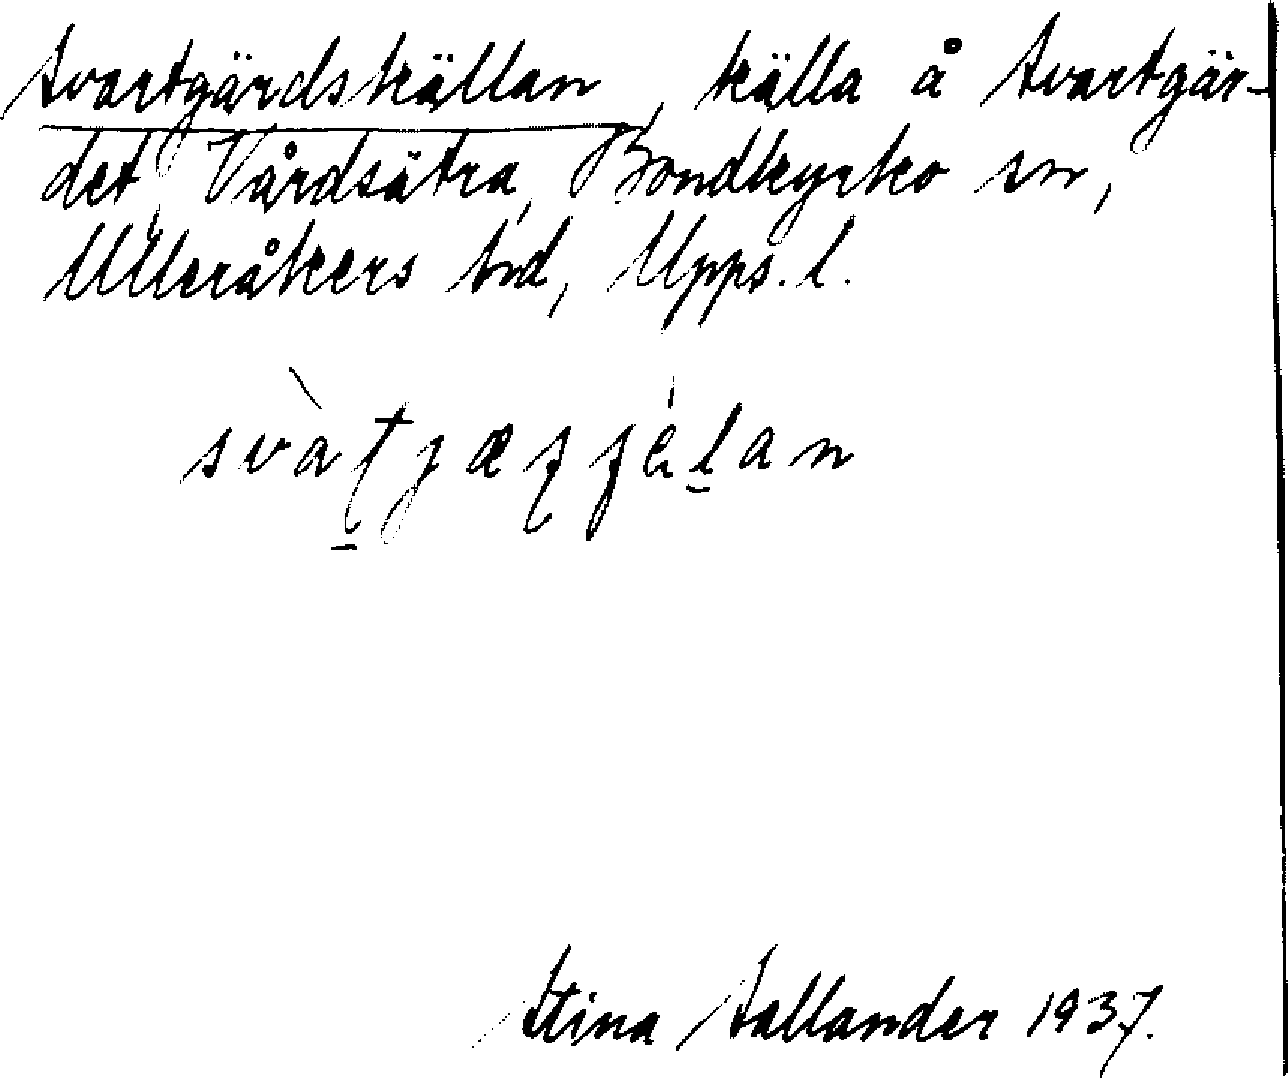 Svartgärdskällan, källa å Svartgär-
det, Vårdsätra, Bondkyrko sn,
Ulleråkers hd, Upps. l.
Stina Sallander 1937.